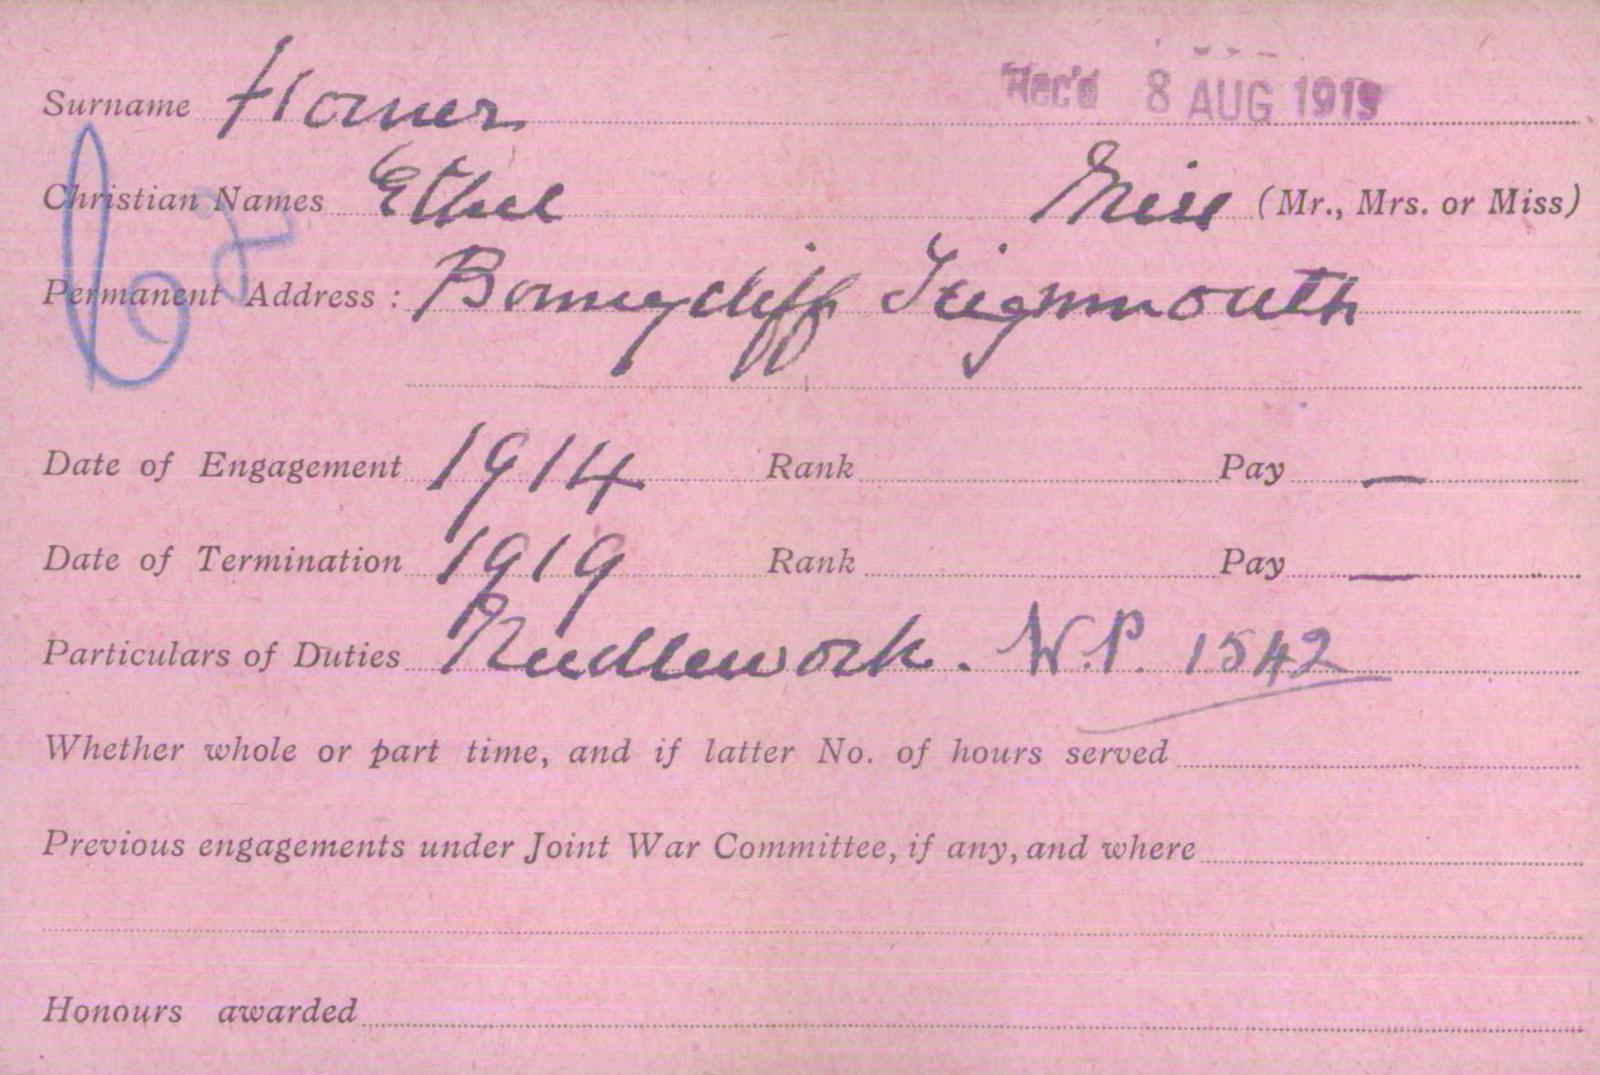 Rec'd 8 AUG 1919
Surname Homer
Christian Names Ethel Miss (Mr., Mrs. or Miss)
Permanent Address: Bonnycliff Teignmouth
Date of Engagement 1914 Rank Pay —
Date of Termination 1919 Rank Pay —
Particulars of Duties Needlework. W.P. 1542
Whether whole or part time, and if latter No. of hours served
Previous engagements under Joint War Committee, if any, and where
Honours awarded